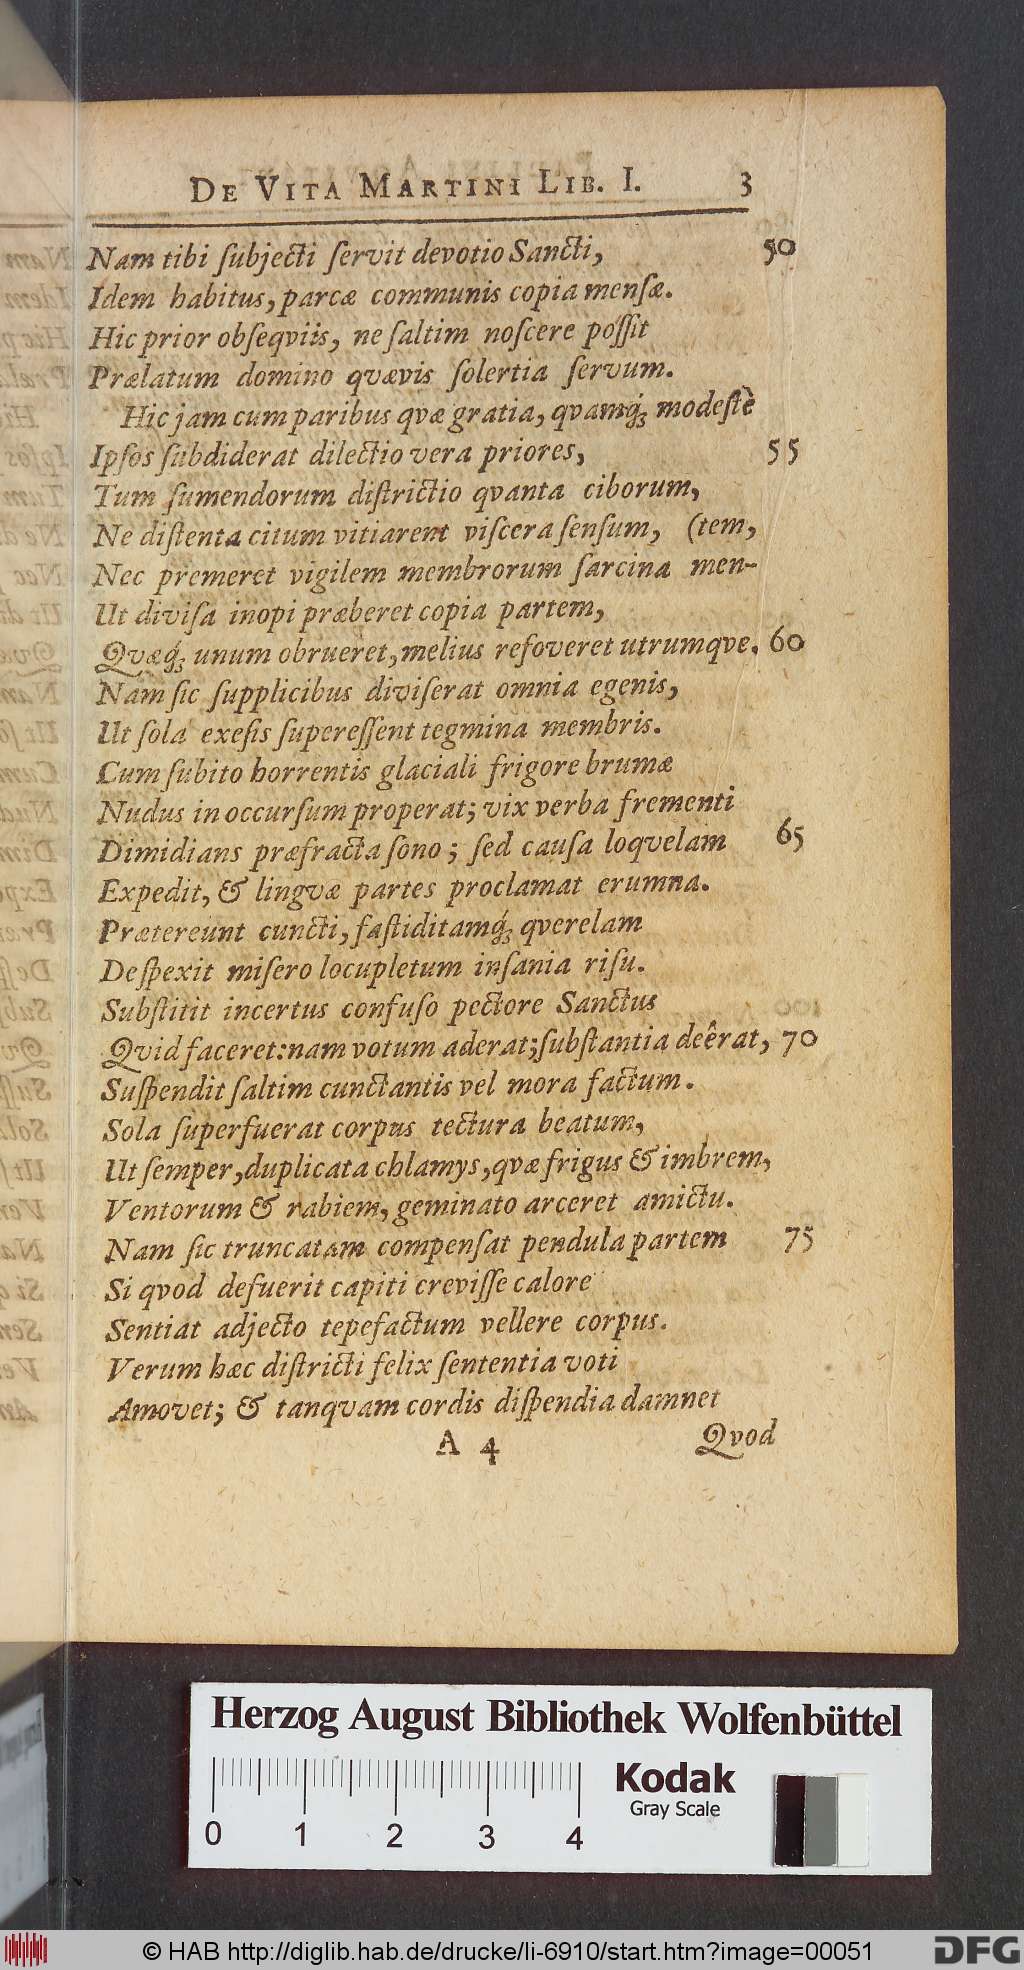 DE VITA MARTINI LIB. I. 3
Nam tibi ſubjecti ſervit devotio Sancti, 50
Idem habitus, parcæ communis copia menſæ.
Hic prior obſeqviis, ne ſaltim noſcere poſſit
Prælatum domino qvævis ſolertia ſervum.
Hic jam cum paribus qvæ gratia, qvamq́; modeſtè
Ipſos ſubdiderat dilectio vera priores, 55
Tum ſumendorum diſtrictio qvanta ciborum,
Ne diſtenta citum vitiarent viſcera ſenſum, (tem,
Nec premeret vigilem membrorum ſarcina men-
Ut diviſa inopi præberet copia partem,
Qvæq́; unum obrueret, melius refoveret utrumqve. 60
Nam ſic ſupplicibus diviſerat omnia egenis,
Ut ſola exeſis ſupereſſent tegmina membris.
Cum ſubito horrentis glaciali frigore brumæ
Nudus in occurſum properat; vix verba frementi
Dimidians præfracta ſono; ſed cauſa loqvelam 65
Expedit, & lingvæ partes proclamat erumna.
Prætereunt cuncti, faſtiditamq́; qverelam
Deſpexit miſero locupletum inſania riſu.
Subſtitit incertus confuſo pectore Sanctus
Qvid faceret: nam votum aderat; ſubſtantia deêrat, 70
Suſpendit ſaltim cunctantis vel mora factum.
Sola ſuperfuerat corpus tectura beatum,
Ut ſemper, duplicata chlamys, qvæ frigus & imbrem,
Ventorum & rabiem, geminato arceret amictu.
Nam ſic truncatam compenſat pendula partem 75
Si qvod defuerit capiti creviſſe calore
Sentiat adjecto tepefactum vellere corpus.
Verum hæc diſtricti felix ſententia voti
Amovet; & tanqvam cordis diſpendia damnet
A 4 Qvod
Herzog August Bibliothek Wolfenbüttel
Kodak
Gray Scale
0 1 2 3 4
© HAB http://diglib.hab.de/drucke/li-6910/start.htm?image=00051
DFG